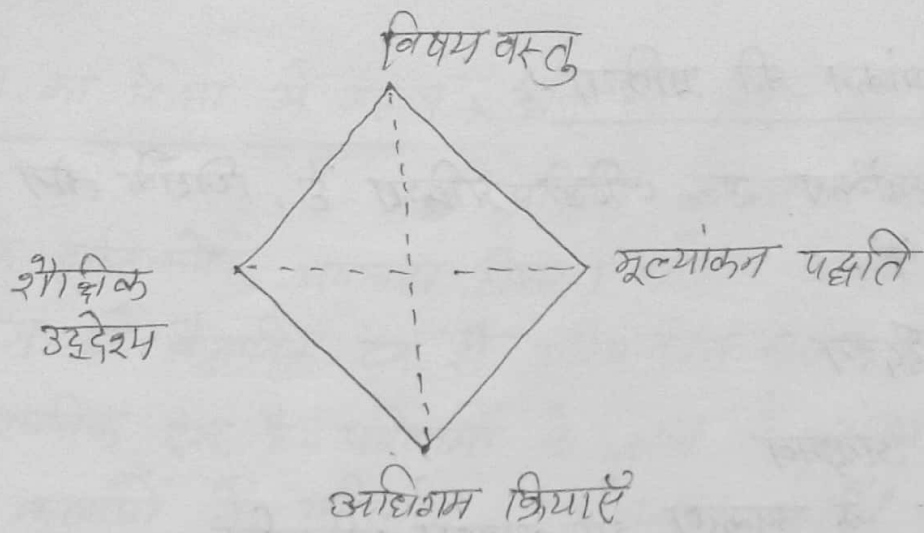 विषय वस्तु
शैक्षिक
उद्देश्य
मूल्यांकन पद्धति
अधिगम क्रियाएँ